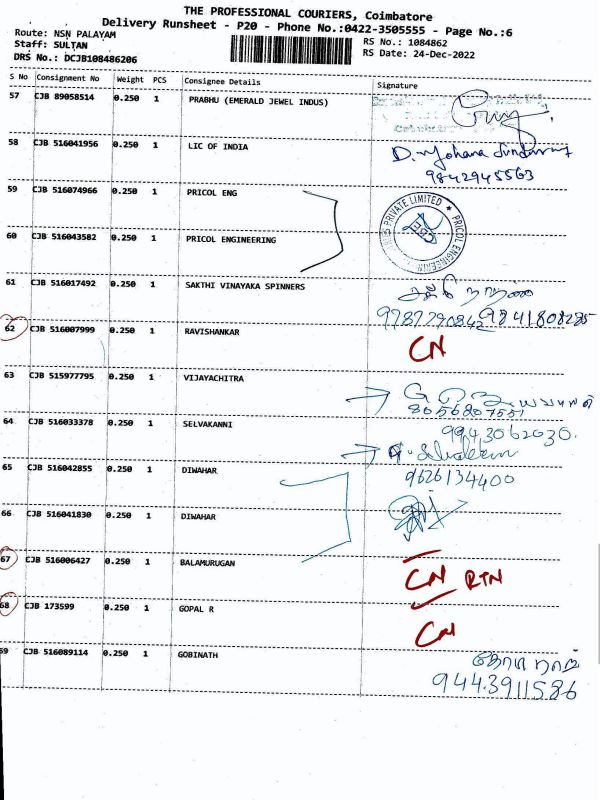 THE PROFESSIONAL COURIERS, Coimbatore
Delivery Runsheet - P20 - Phone No.:0422-3505555 - Page No.:6
Route: NSN PALAYAM
RS No.: 1084862
Staff: SULTAN
RS Date: 24-Dec-2022
DRS No.: DCJB108486206
S No Consignment No Weight PCS Consignee Details Signature
57 CJB 89058514 0.250 1 PRABHU (EMERALD JEWEL INDUS)
58 CJB 516041956 0.250 1 LIC OF INDIA
9842945563
59 CJB 516074966 0.250 1 PRICOL ENG
PRIVATE LIMITED ★ PRICOL ENGINEERING
60 CJB 516043582 0.250 1 PRICOL ENGINEERING
61 CJB 516017492 0.250 1 SAKTHI VINAYAKA SPINNERS
9787790842 9841808285
62 CJB 516007999 0.250 1 RAVISHANKAR CN
63 CJB 515977795 0.250 1 VIJAYACHITRA
8056807551
64 CJB 516033378 0.250 1 SELVAKANNI 9943062030.
65 CJB 516042855 0.250 1 DIWAHAR 9626134400
66 CJB 516041830 0.250 1 DIWAHAR
67 CJB 516006427 0.250 1 BALAMURUGAN CN RTN
68 CJB 173599 0.250 1 GOPAL R CN
69 CJB 516089114 0.250 1 GOBINATH
9443911586